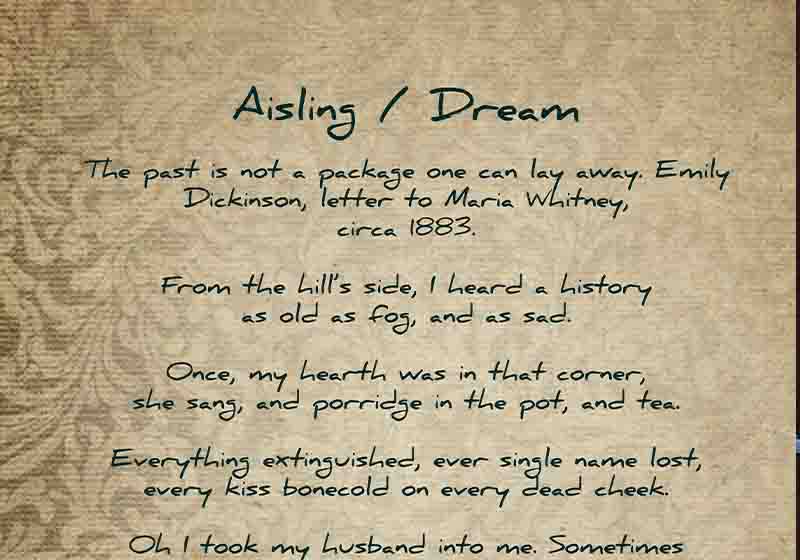 Aisling / Dream
The past is not a package one can lay away. Emily
Dickinson, letter to Maria Whitney,
circa 1883.
From the hill's side, I heard a history
as old as fog, and as sad.
Once, my hearth was in that corner,
she sang, and porridge in the pot, and tea.
Everything extinguished, ever single name lost,
every kiss bonecold on every dead cheek.
Oh I took my husband into me. Sometimes